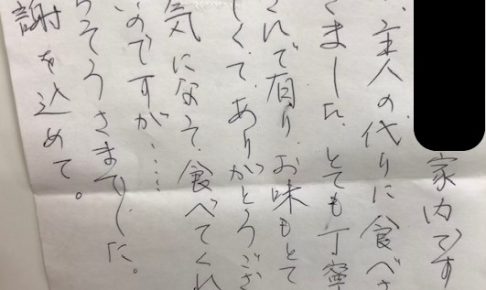 家内です
、主人の代りに食べさ
くました。とても丁寧
くれで有り、お味もとて
しくて、ありがとうござ
気になって、食べてくれ
いのですが、……
ちそうさまでした。
謝を込めて。